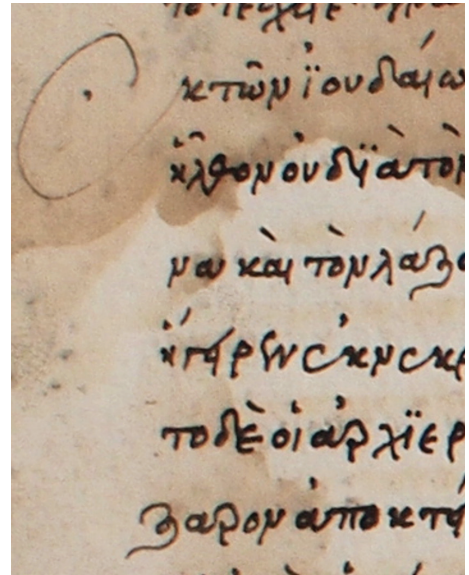 κ τῶν ϊουδαίω
ἦλθον ὀυ δϊὰ τὸν
να καὶ τὸν λάζα
ἤγειρεν ἐκ νεκρ
το δὲ οἱ ἀρχϊερ
ζαρον ἀποκτεί